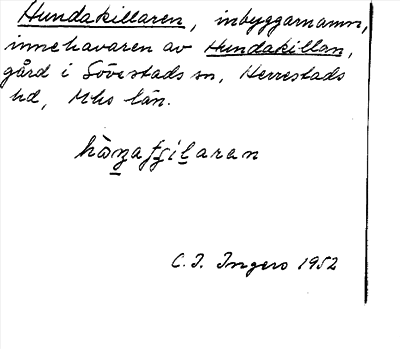 Hundakillaren, inbyggarnamn,
innehavaren av Hundakillan,
gård i Sövestads sn, Herrestads
hd, Mhs län.
C. I. Ingers 1952